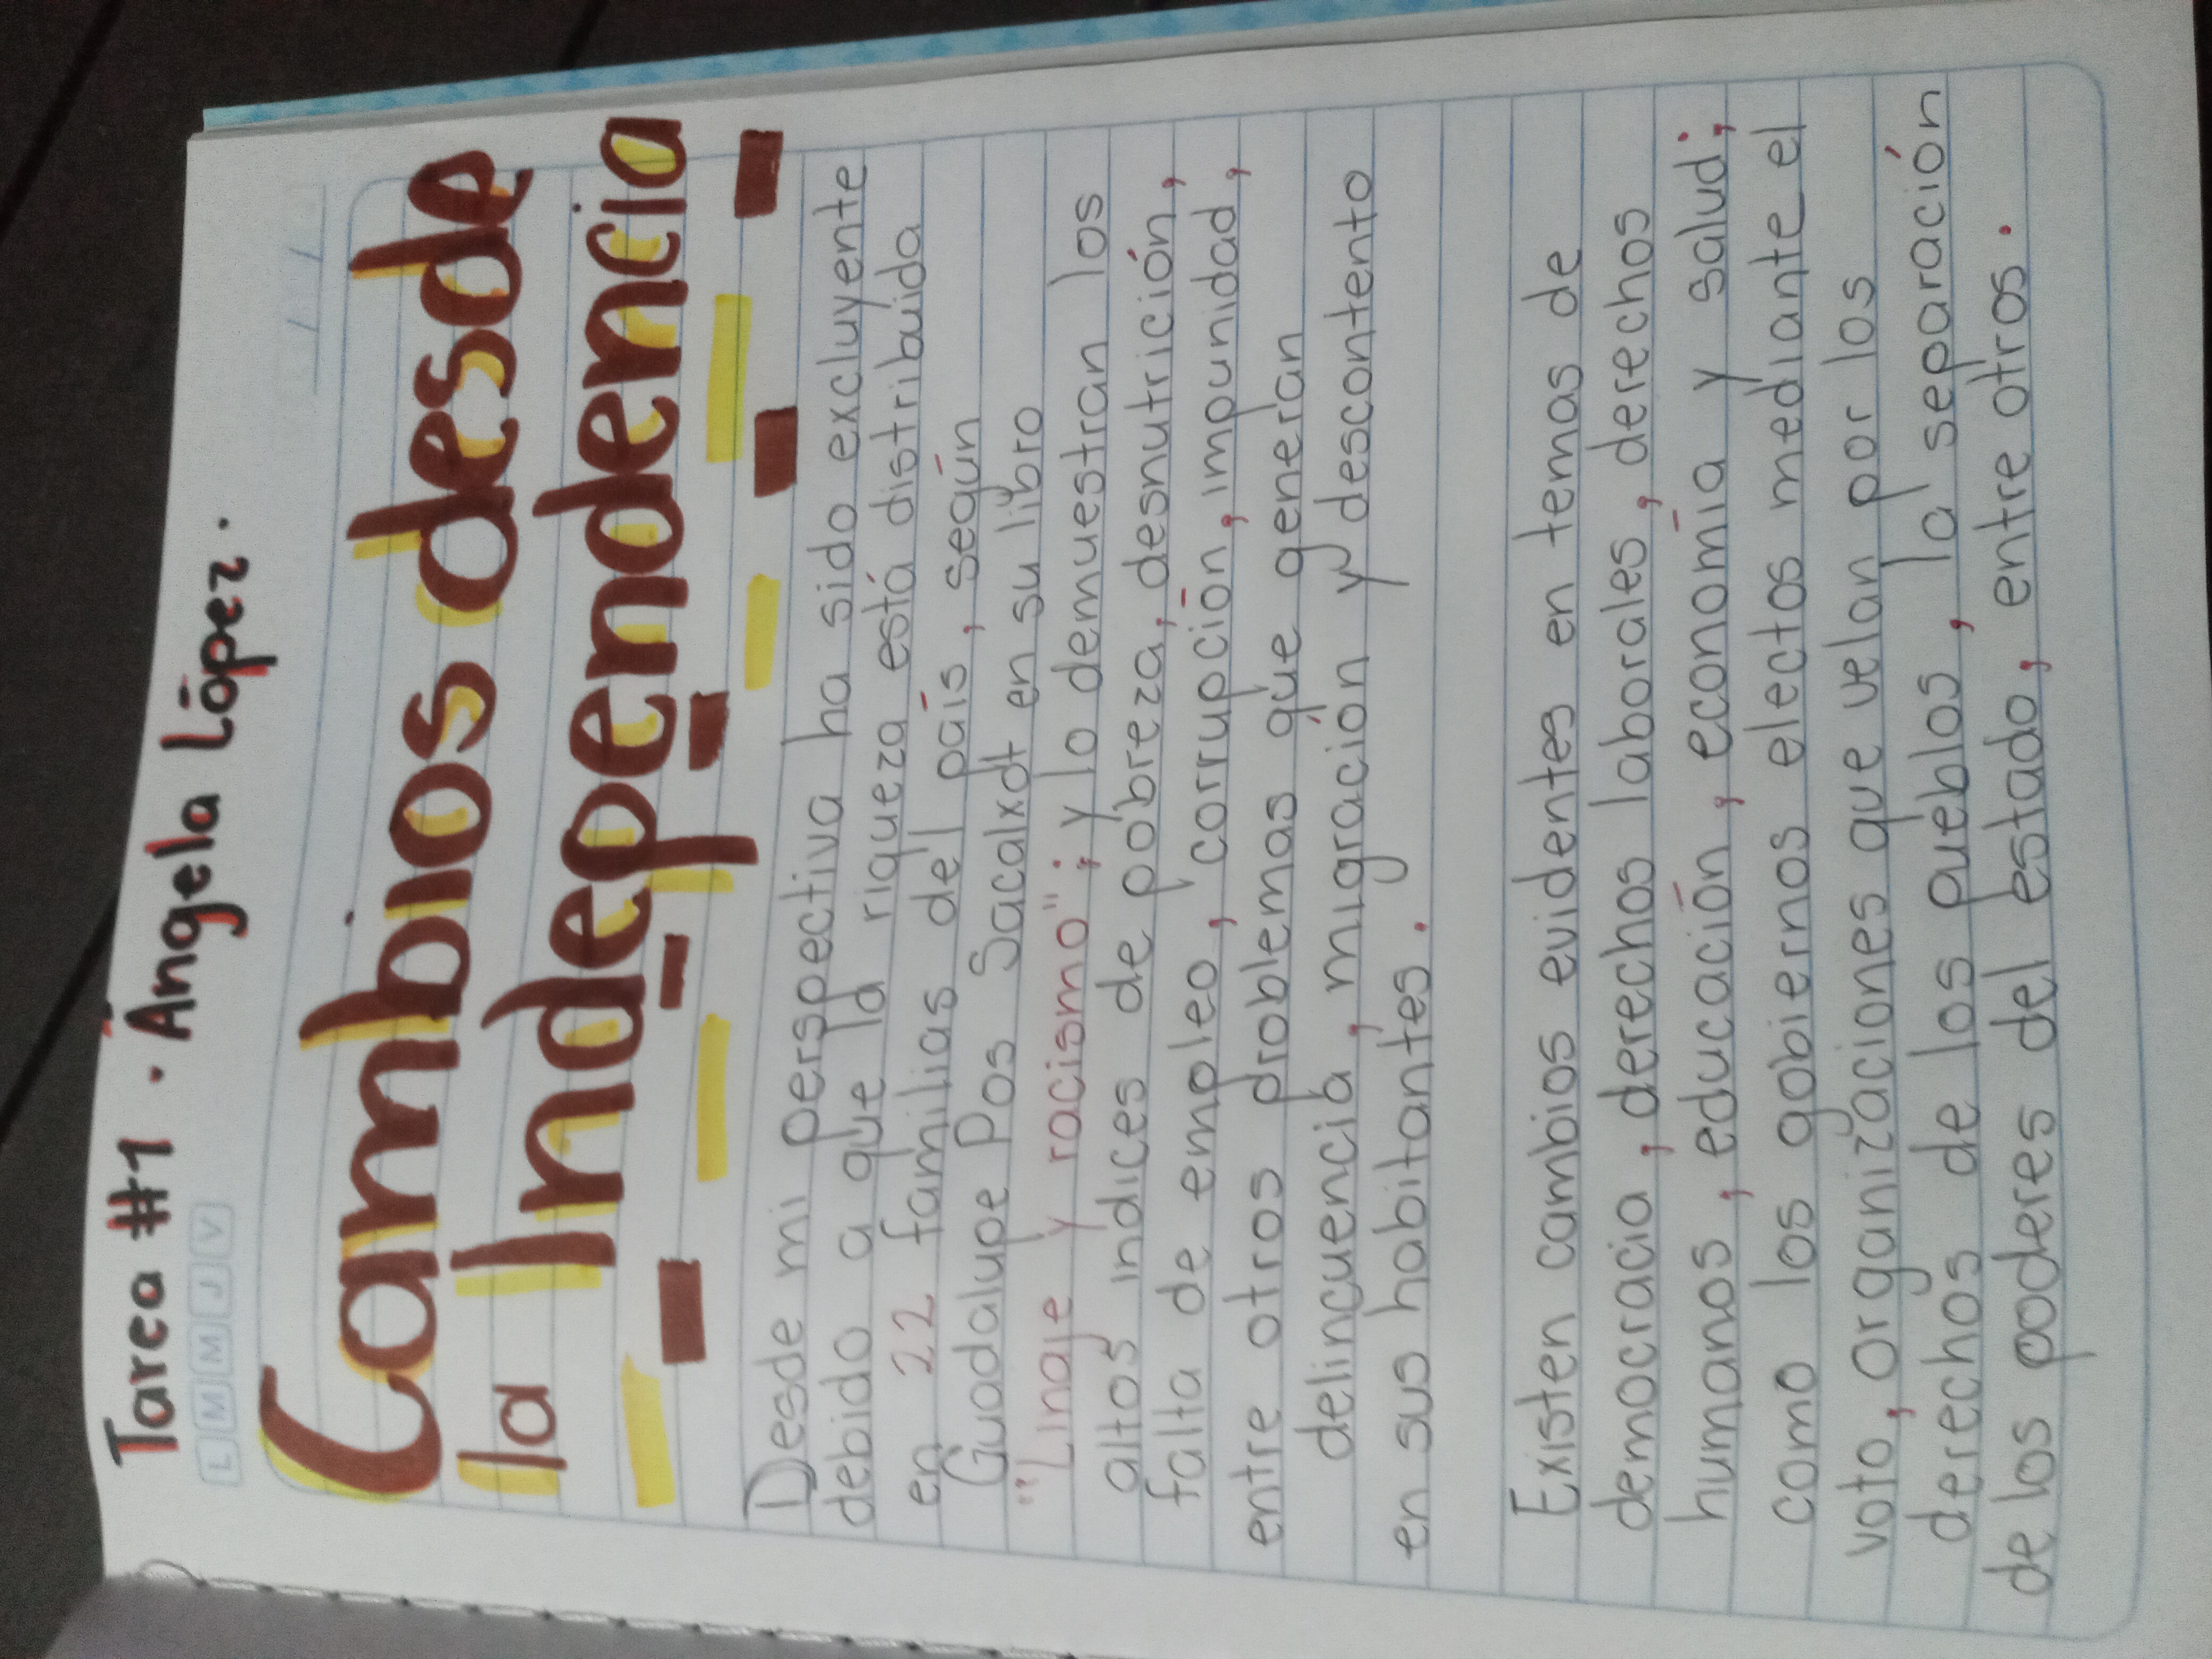 Tarea #1 . Ángela López.
L M M J V
Cambios desde
la Independencia
Desde mi perspectiva ha sido excluyente
debido a que la riqueza está distribuida
en 22 familias del país, según
Guadalupe Pos Sacalxot en su libro
"Linaje y racismo"; y lo demuestran los
altos índices de pobreza, desnutrición,
falta de empleo, corrupción, impunidad,
entre otros problemas que generan
delincuencia, migración y descontento
en sus habitantes.
Existen cambios evidentes en temas de
democracia, derechos laborales, derechos
humanos, educación, economía y salud;
como los gobiernos electos mediante el
voto, organizaciones que velan por los
derechos de los pueblos, la separación
de los poderes del estado, entre otros.